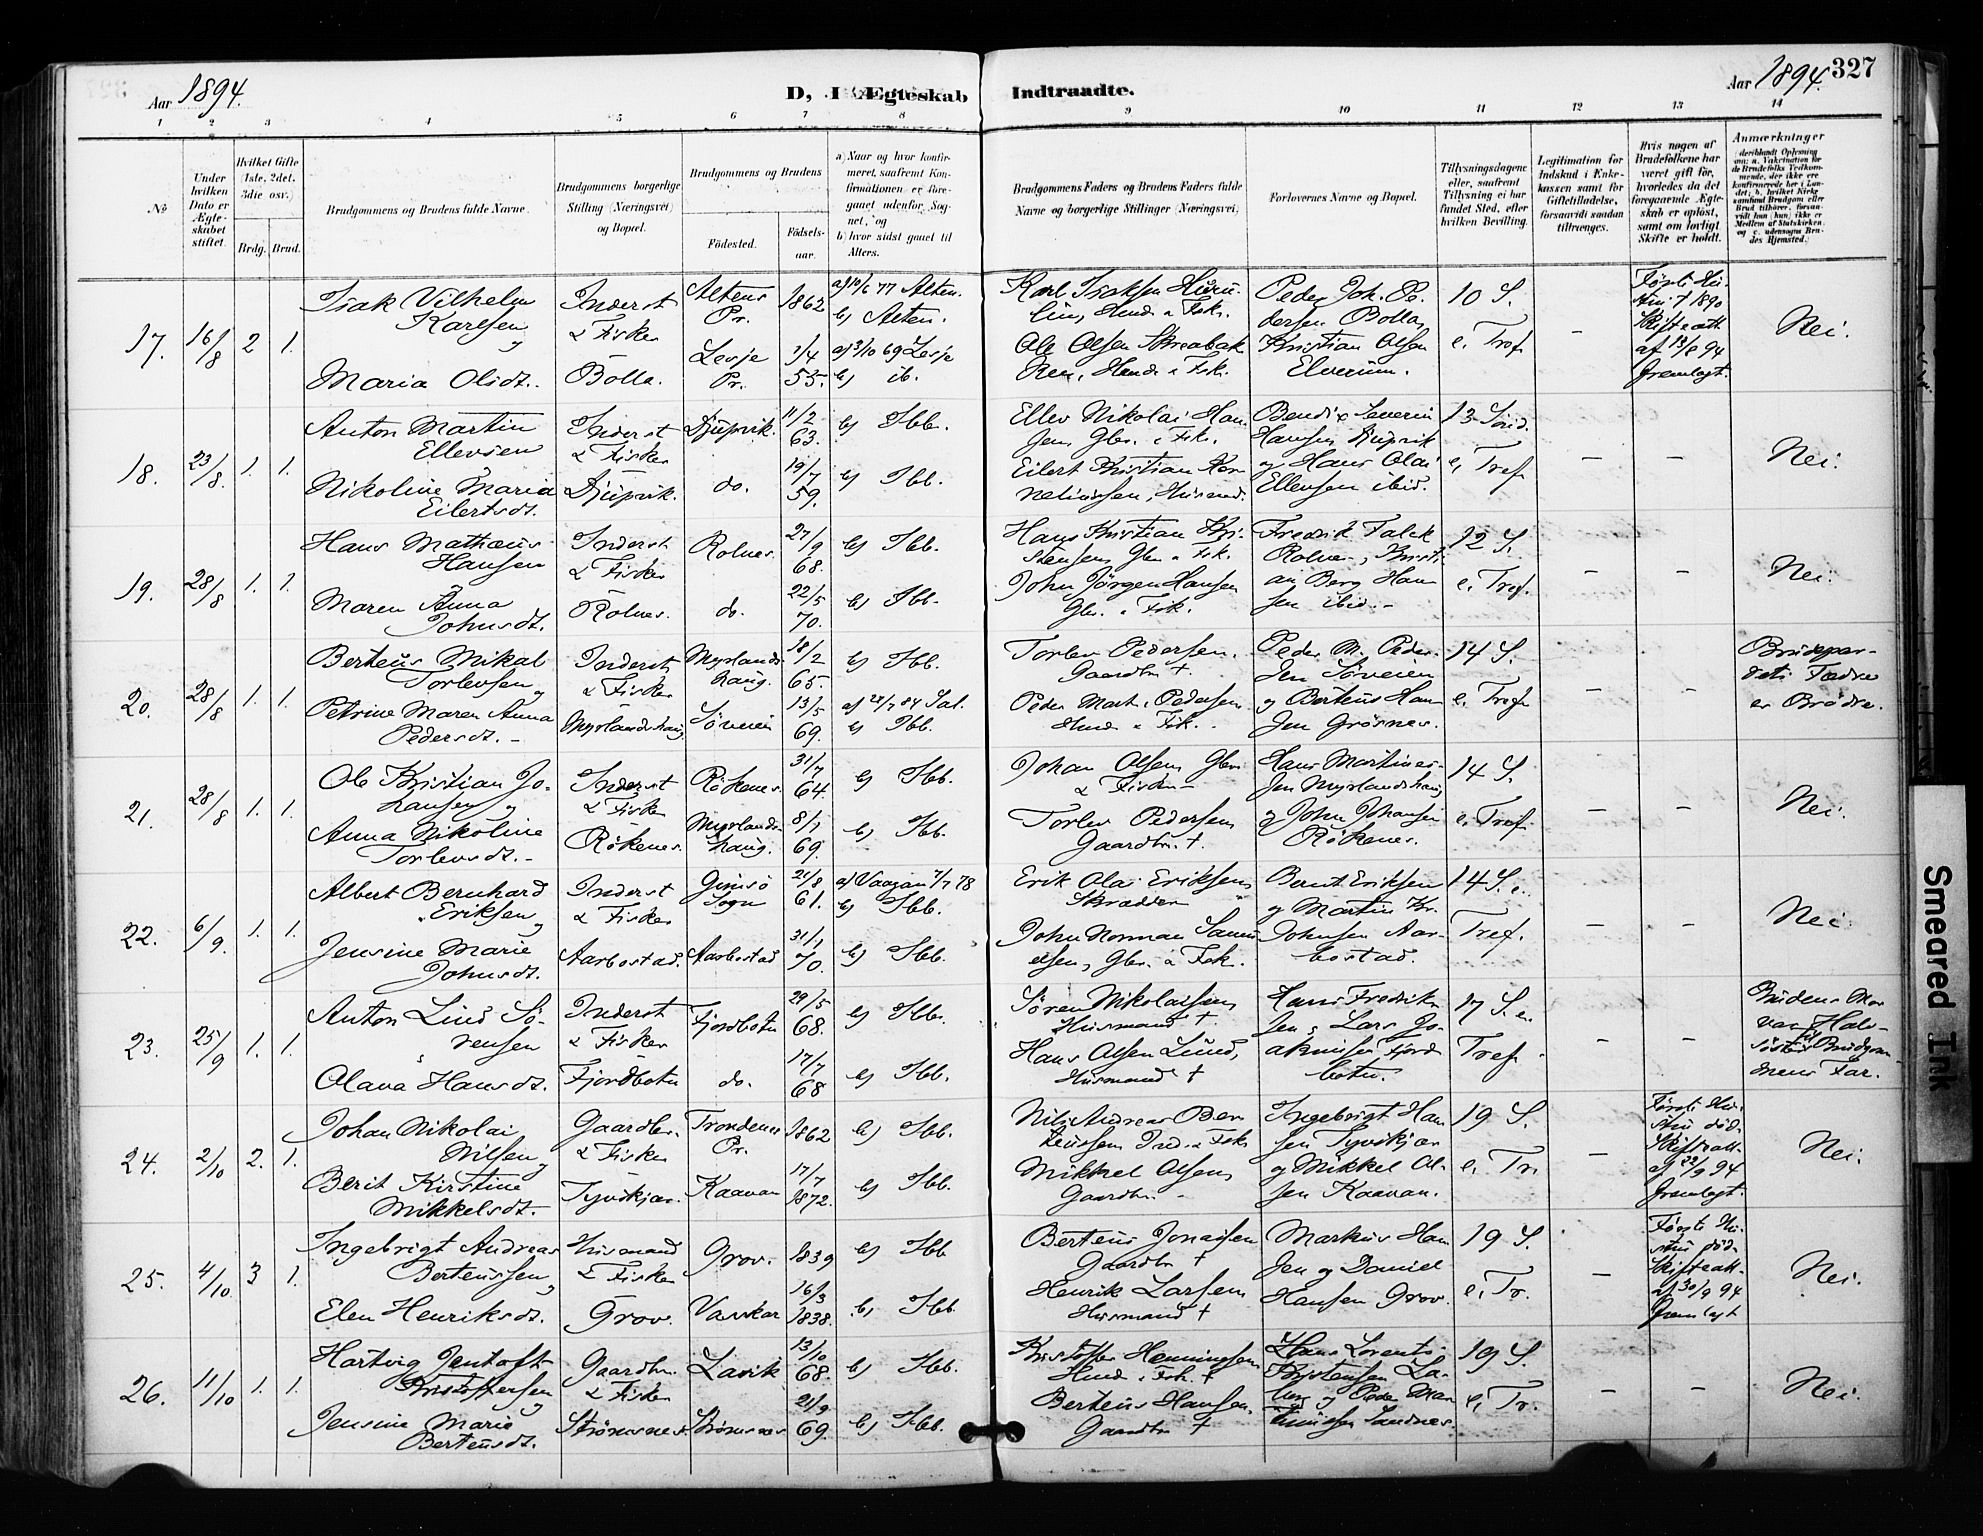 Aar 1894.
D, I Ægteskab Indtraadte.
Aar 1894.
327
1 2 3 4 5 6 7 8 9 10 11 12 13 14
No
Under hvilken Dato er Ægteskabet stiftet.
Hvilket Gifte (1ste, 2det, 3die osv.)
Brdg. Brud.
Brudgommens og Brudens fulde Navne.
Brudgommens borgerlige Stilling (Næringsvei) og Bopæl.
Brudgommens og Brudens
Födested. Födselsaar.
a) Naar og hvor konfirmeret, saafremt Konfirmationen er foregaaet udenfor Sognet, og
b) hvor sidst gaaet til Alters.
Brudgommens Faders og Brudens Faders fulde Navne og borgerlige Stillinger (Næringsvei)
Forlovernes Navne og Bopæl.
Tillysningsdagene eller, saafremt Tillysning ei har fundet Sted, efter hvilken Bevilling.
Legitimation for Indskud i Enkekassen samt for Giftetilladelse, forsaavidt saadan tiltrænges.
Hvis nogen af Brudefolkene har været gift för, hvorledes da det foregaaende Ægteskab er oplöst, samt om lovligt Skifte er holdt.
Anmærkninger
17. 16/8 2 1.
Isak Vilhelm Karlsen og
Maria Olsdt.
Inderst & Fisker Bolla.
Altens Pr. 1862
Lesje Pr. 1/4 55.
b) Alten.
a) 3/10 69 Lesje b) ib.
Peder Joh. Pedersen Bolla, Kristian Olsen Elverum.
10 S. e. Tref. - Nei.
18. 23/8 1. 1.
Anton Martin Ellevsen
Nikoline Maria Eilertsdt.
Inderst & Fisker Djupvik.
Djupvik. 11/2 63. b) Ibb.
do. 19/7 59. b) Ibb.
Ellev Nikolai Hansen, Gbr. & Fsk.
Eilert Kristian Korneliussen, Husmd.
Bendix Severin Hansen Djupvik og Hans Olai Ellevsen ibid.
e. Tref - - Nei.
19. 28/8 1. 1.
Hans Mathæus Hansen
Maren Anna Johnsdt.
Inderst & Fisker Rolnes.
Rolnes. 27/9 68. b) Ibb.
do. 22/5 70. b) Ibb.
Hans Kristian Kristensen, Gbr. & Fsk.
John Jørgen Hansen Gbr. & Fsk.
Fredrik Falck Rolnes, Kristian Berg Hansen ibid.
12 S. e. Tref. - - Nei.
20. 28/8 1. 1.
Berteus Mikal Torlevsen og
Petrine Maren Anna Pedersdt.
Inderst & Fisker Myrlandshaug
Myrlandshaug. 18/2 65. b) Ibb.
Søveien 13/5 69. b) Ibb.
Torlev Pedersen. Gaardbr. †
Peder Mart. Pedersen Husmd & Fsk.
Peder M. Pedersen Søveien og Berteus Hansen Grøsnes.
14 S. e. Tref - - Brudeparrets Fædre er Brödre.
21. 28/8 1. 1.
Ole Kristian Johansen og
Anna Nikoline Torlevsdt.
Inderst & Fisker Rökenes.
Rökenes. 31/7 64. b) Ibb.
Myrlandshaug. 8/1 69. b) Ibb.
Johan Olsen Gbr. & Fisker
Torlev Pedersen Gaardbr. †.
Hans Martinesen Myrlandshaug og John Johansen Rökenes.
14 S. e. Tref. - - Nei.
22. 6/9. 1. 1.
Albert Bernhard Eriksen og
Jensine Marie Johnsdt.
Inderst & Fisker Aarbostad.
Gimsö Sogn 21/8 61. a) Vaagan 7/7 78 b) Ibb.
Aarbostad 31/1 70. b) Ibb.
Erik Olai Eriksen, Skrædder
John Norman Samuelsen, Gbr. & Fsk.
Bernt Eriksen og Martin Kr. Johnsen Aarbostad.
14 S. e. Tref. - - Nei.
23. 25/9 1. 1.
Anton Lind Sörensen
Olava Hansdt.
Inderst & Fisker Fjordbotn
Fjordbotn 29/5 68. b) Ibb.
do. 17/7 68 b) Ibb.
Sören Nikolaisen, Husmand †.
Hans Olsen Lund, Husmand †
17 S. e. Tref. - - Brudens Mor var Halvsöster til Brudgommens Far.
24. 2/10 2. 1.
Johan Nikolai Nilsen og
Berit Kirstine Mikkelsdt.
Gaardbr. & Fisker Tyvskjær.
Trondenes Pr. 1862 b) Ibb.
Kaavan 17/7 1872. b) Ibb.
Nils Andreas Berteussen Ind. & Fsk.
Mikkel Olsen, Gaardbr.
Ingebrigt Hansen Tyvskjær og Mikkel Olsen Kaavan.
19 S. e. Tr. - Første Hustru död. Skifteatt. af 22/9 94 fremlagt. Nei.
25. 4/10 3 1.
Ingebrigt Andreas Berteussen
Elen Henriksdt.
Husmand & Fisker Grov.
Grov. 1839 b) Ibb
16/3 1838. b) Ibb
Berteus Jonassen Gaardbr. †
Henrik Larsen, Husmand †
Markus Hansen og Daniel Hansen Grov.
19 S. e. Tr. - Første Hustru död. Skifteatt. af 30/9 94 fremlagt Nei.
26. 11/10 1. 1.
Hartvig Jentoft Kristoffersen og
Jensine Marie Berteusdt.
Gaardbr. & Fisker Strömsnes.
Lavik 13/10 68. b) Ibb.
Strömsnes 21/9 69. b) Ibb.
Kristoffer Henningsen, Husmd & Fsk. †
Berteus Hansen. Gaardbr †
19 S. e. Tr. - - Nei.
Smeared Ink